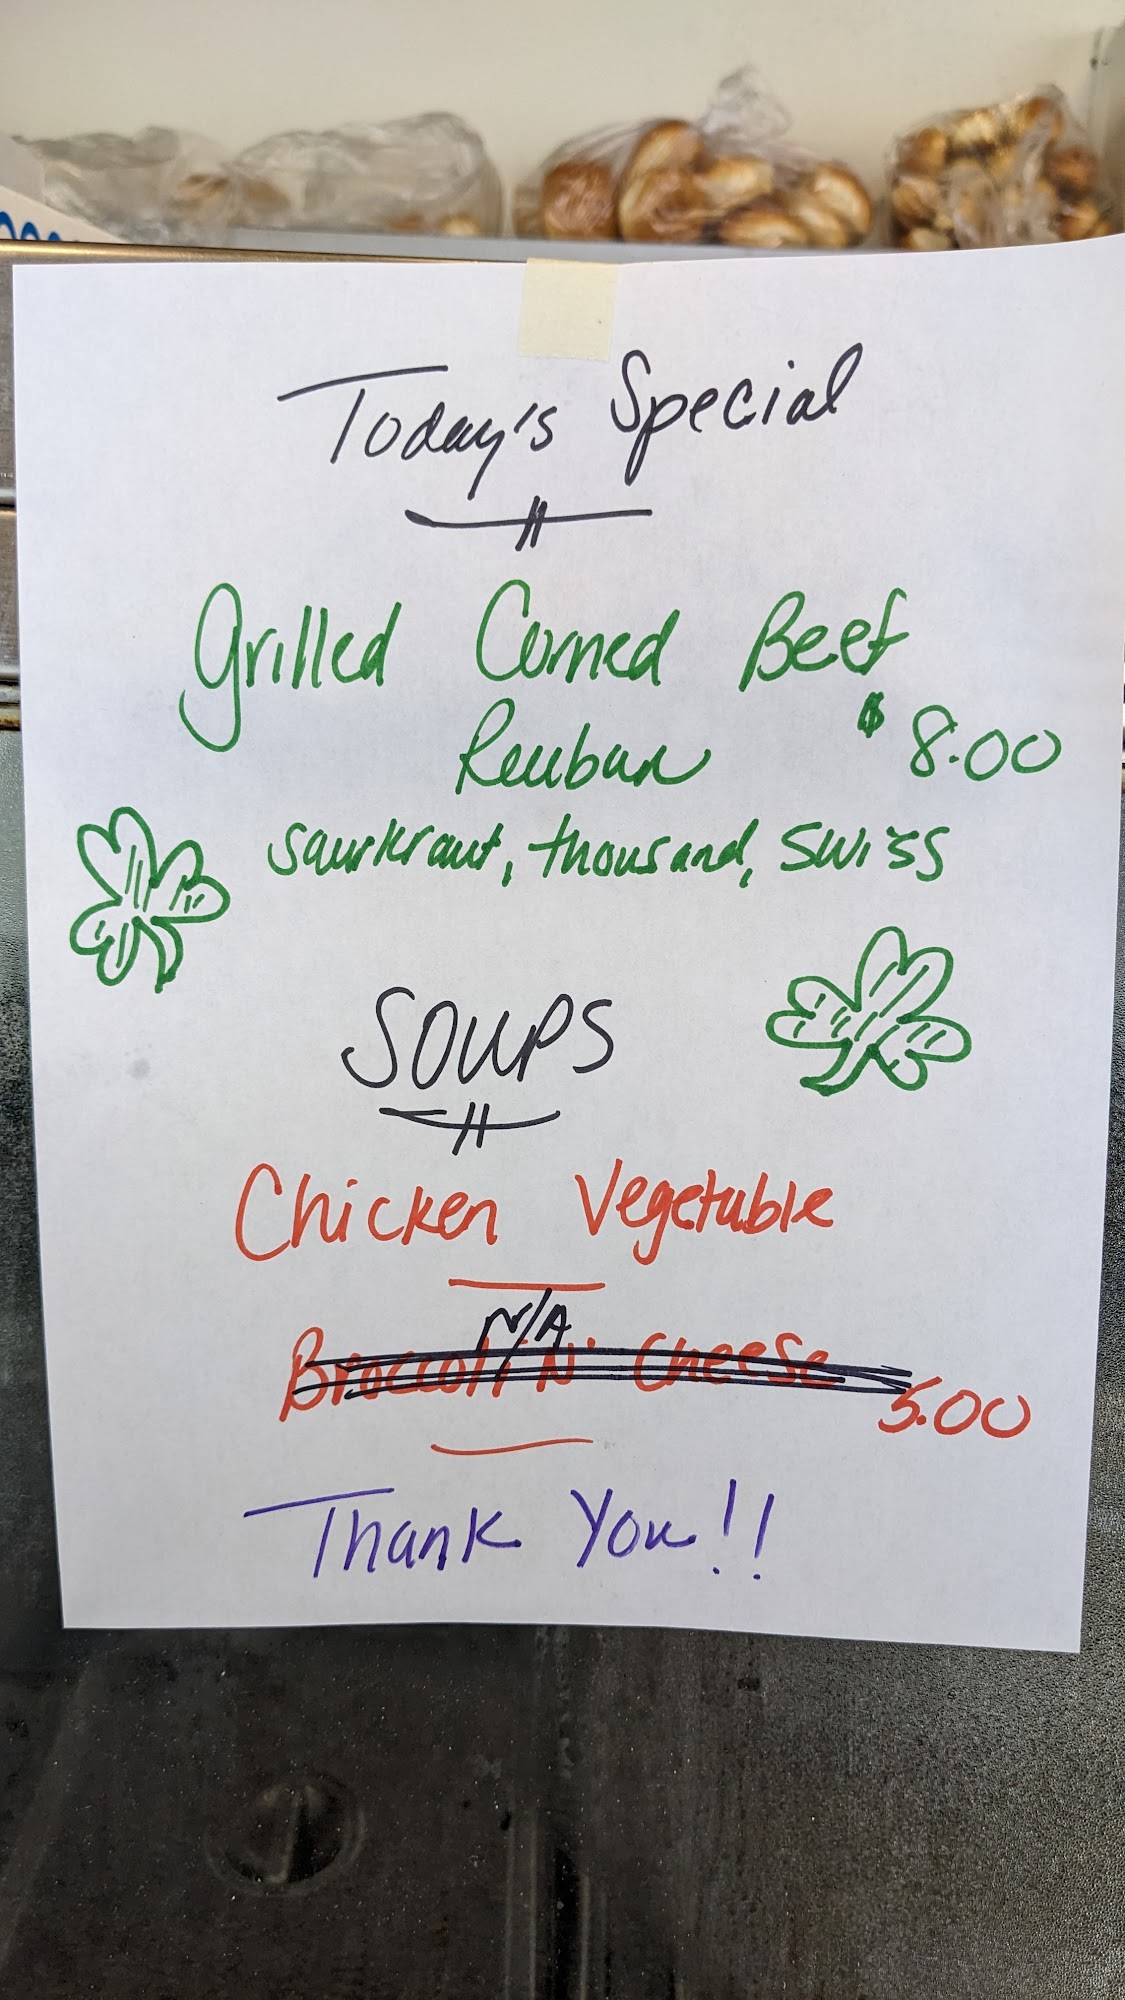 Today's Special
Grilled Corned Beef
Reuban $8.00
saurkraut, thousand, swiss
SOUPS
Chicken Vegetable
N/A
Broccoli 'N' Cheese
5.00
Thank You!!